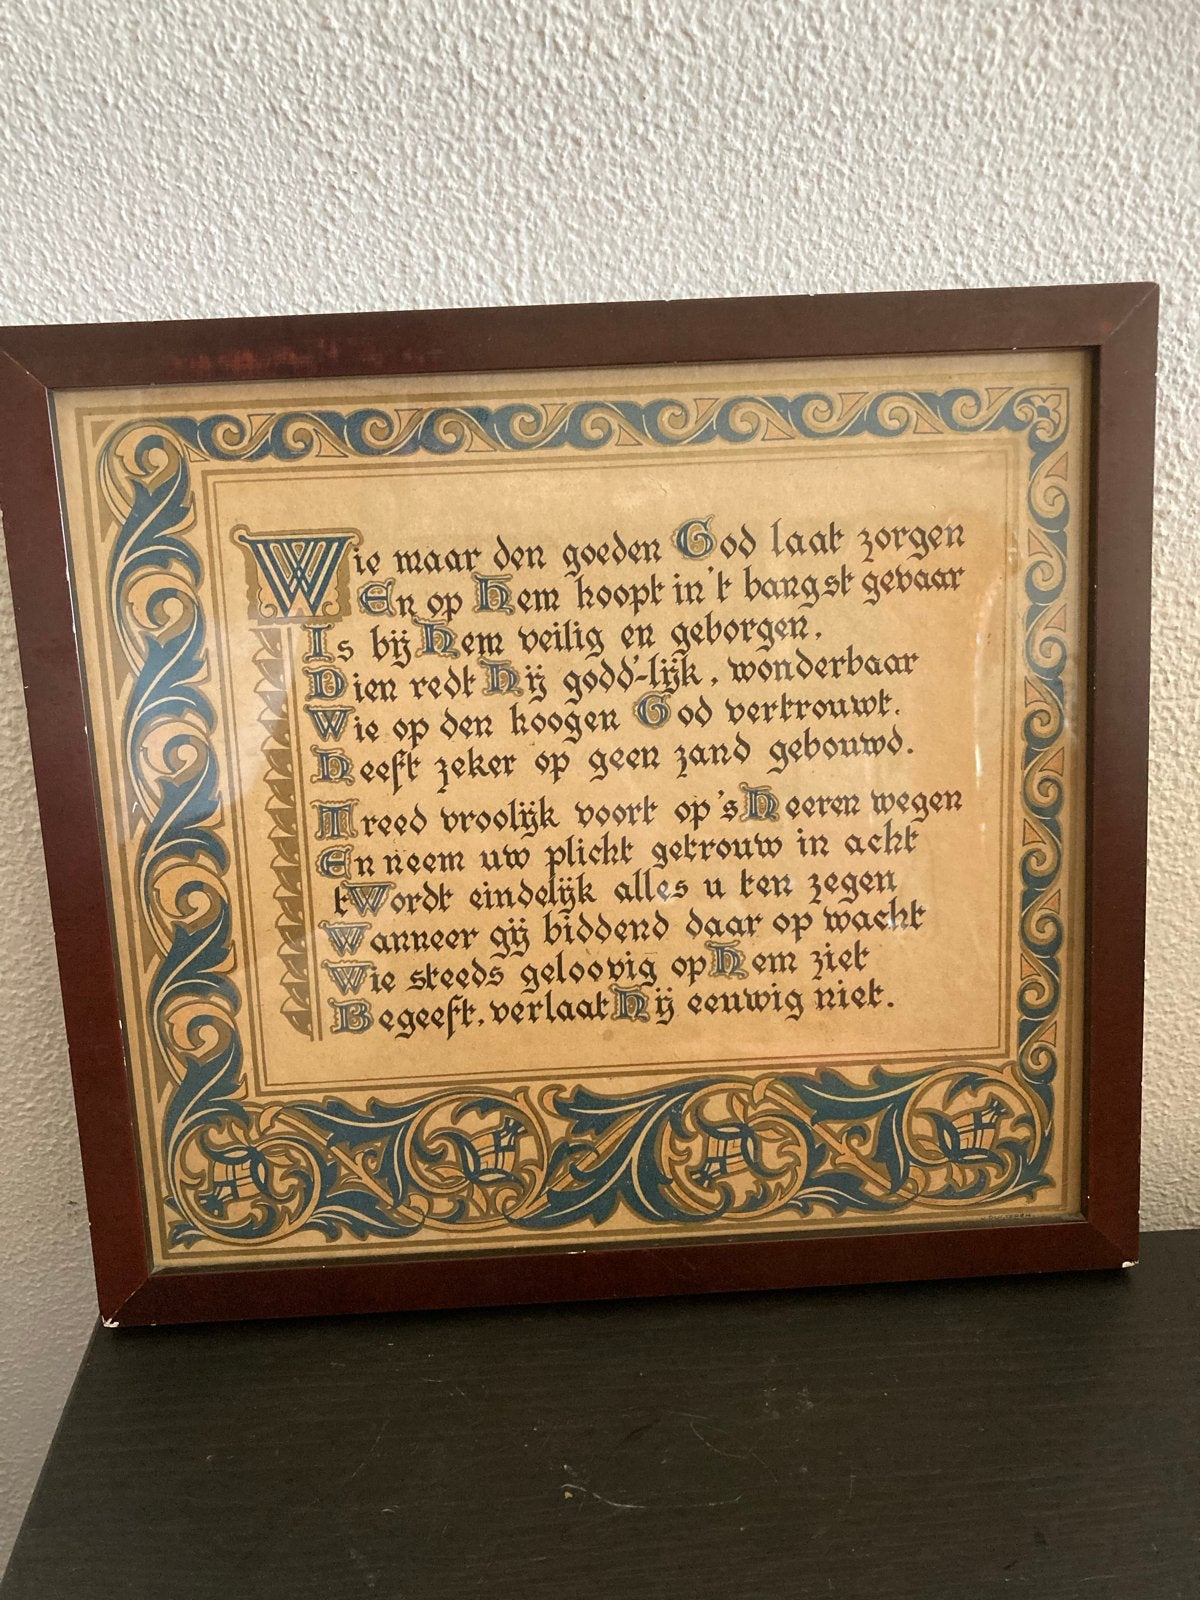 Wie maar den goeden God laat zorgen
En op Hem hoopt in 't bangst gevaar
Is bij Hem veilig en geborgen,
Dien redt Hij godd'-lijk, wonderbaar
Wie op den hoogen God vertrouwt,
Heeft zeker op geen zand gebouwd.
Treed vroolijk voort op 's Heeren wegen
En neem uw plicht getrouw in acht
t Wordt eindelijk alles u ten zegen
Wanneer gij biddend daar op wacht
Wie steeds geloovig op Hem ziet
Begeeft, verlaat Hij eeuwig niet.